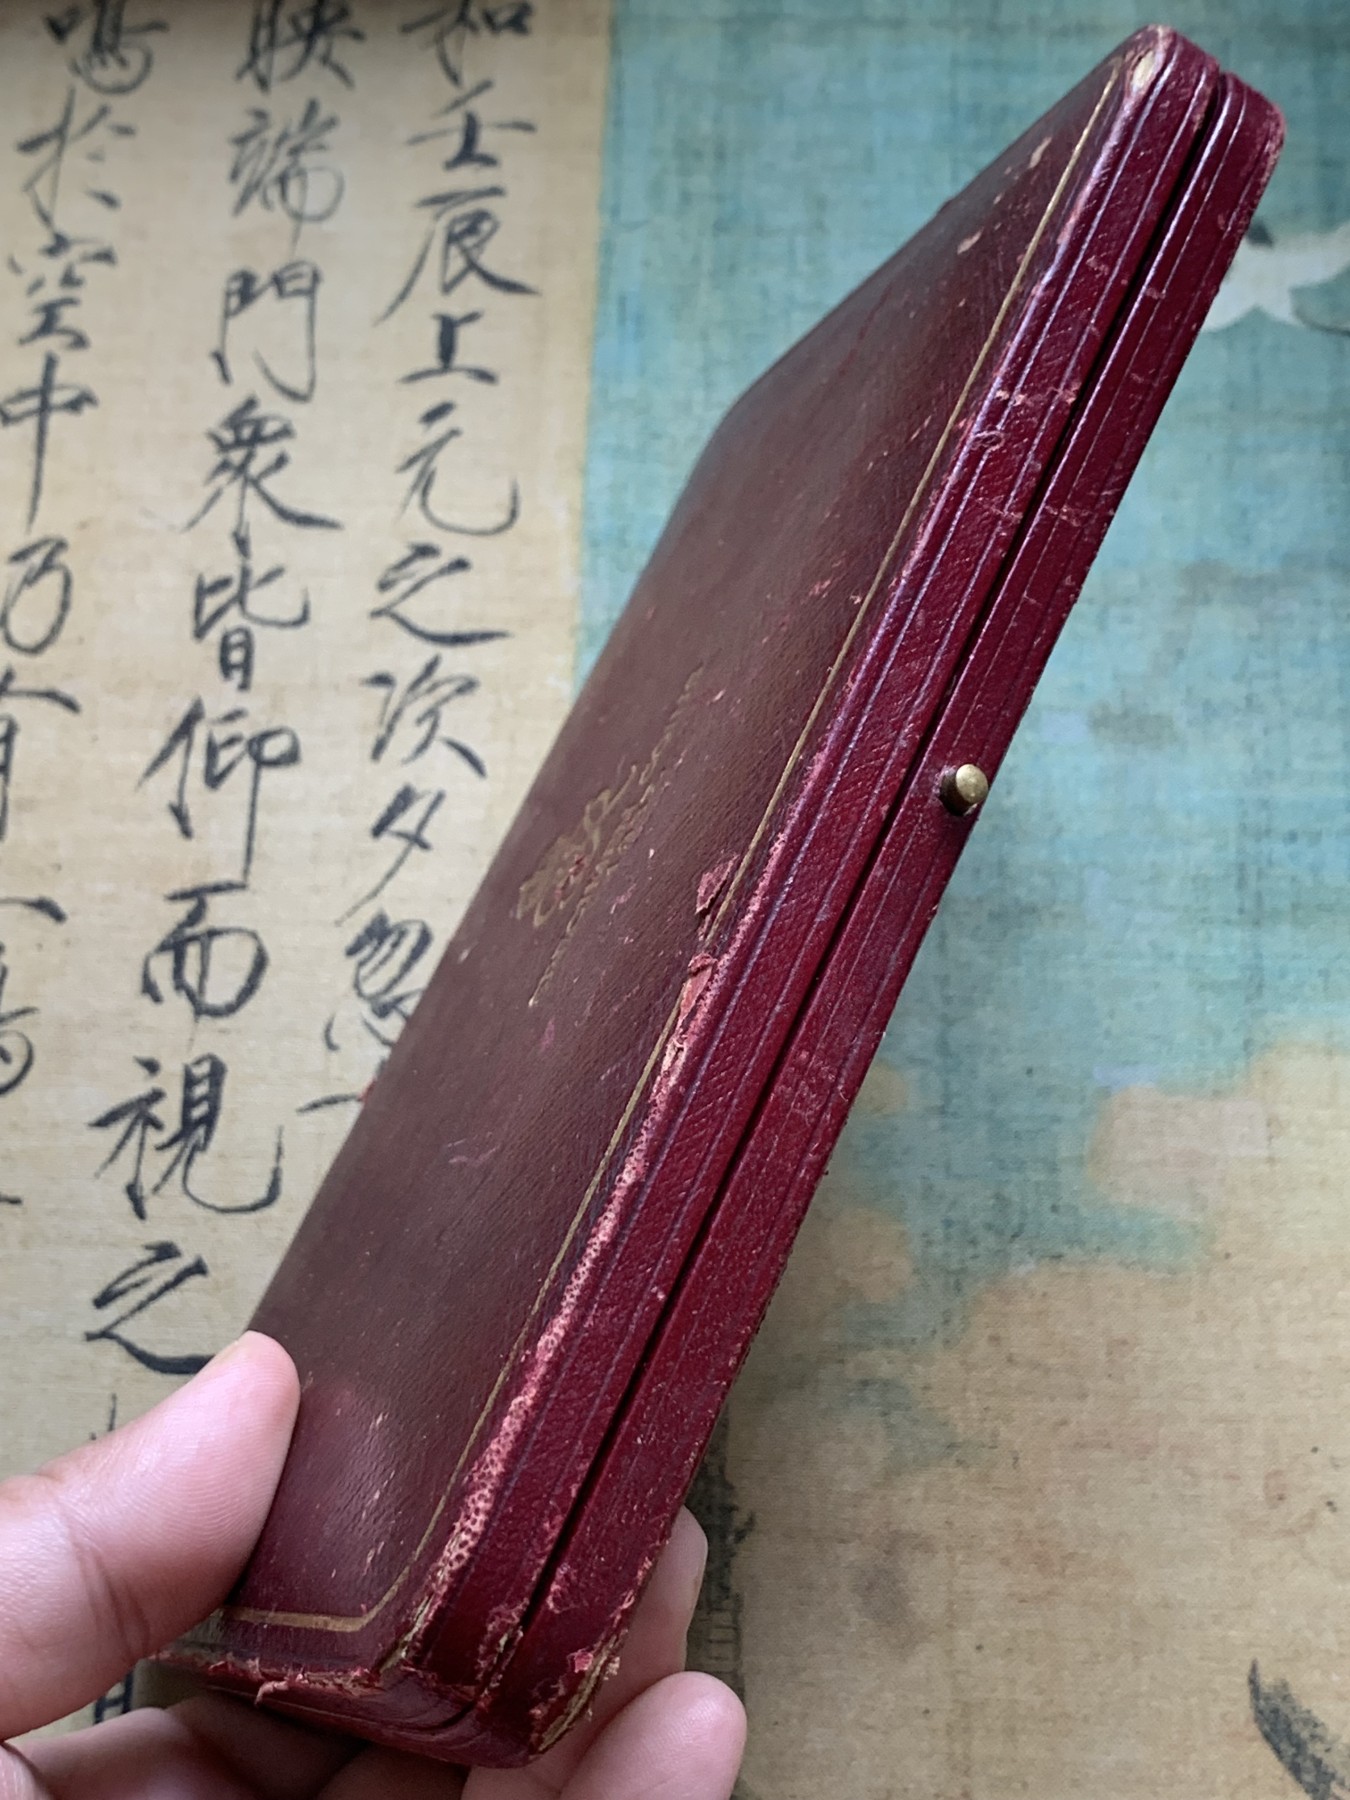 和壬辰上元之次夕忽
映端門衆皆仰而視之
鳴於空中